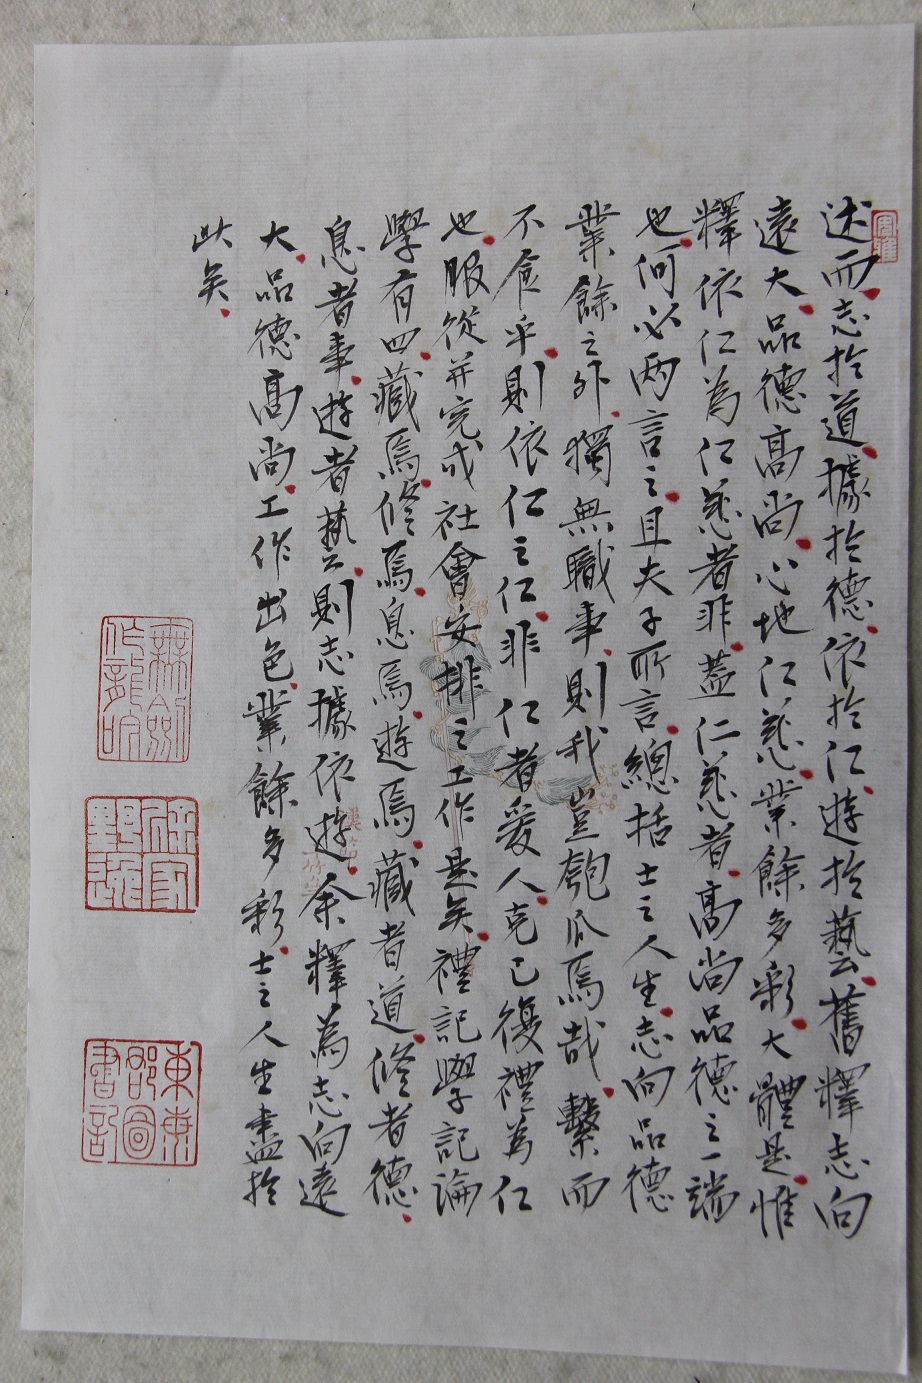 述而志於道據於德依於仁遊於藝舊釋志向
遠大品德高尚心地仁慈業餘多彩大體是惟
釋依仁為仁慈者非蓋仁慈者高尚品德之一端
也何必兩言之且夫子所言總括士之人生志向品德
業餘之外獨無職事則我豈匏瓜焉哉繫而
不食乎則依仁之仁非仁者爰人克己復禮為仁
也服從并完成社會安排之工作是矣禮記學記論
學有四藏焉修焉息焉遊焉藏者道修者德
息者事遊者藝則志據依遊余釋為志向遠
大品德高尚工作出色業餘多彩士之人生盡於
此矣